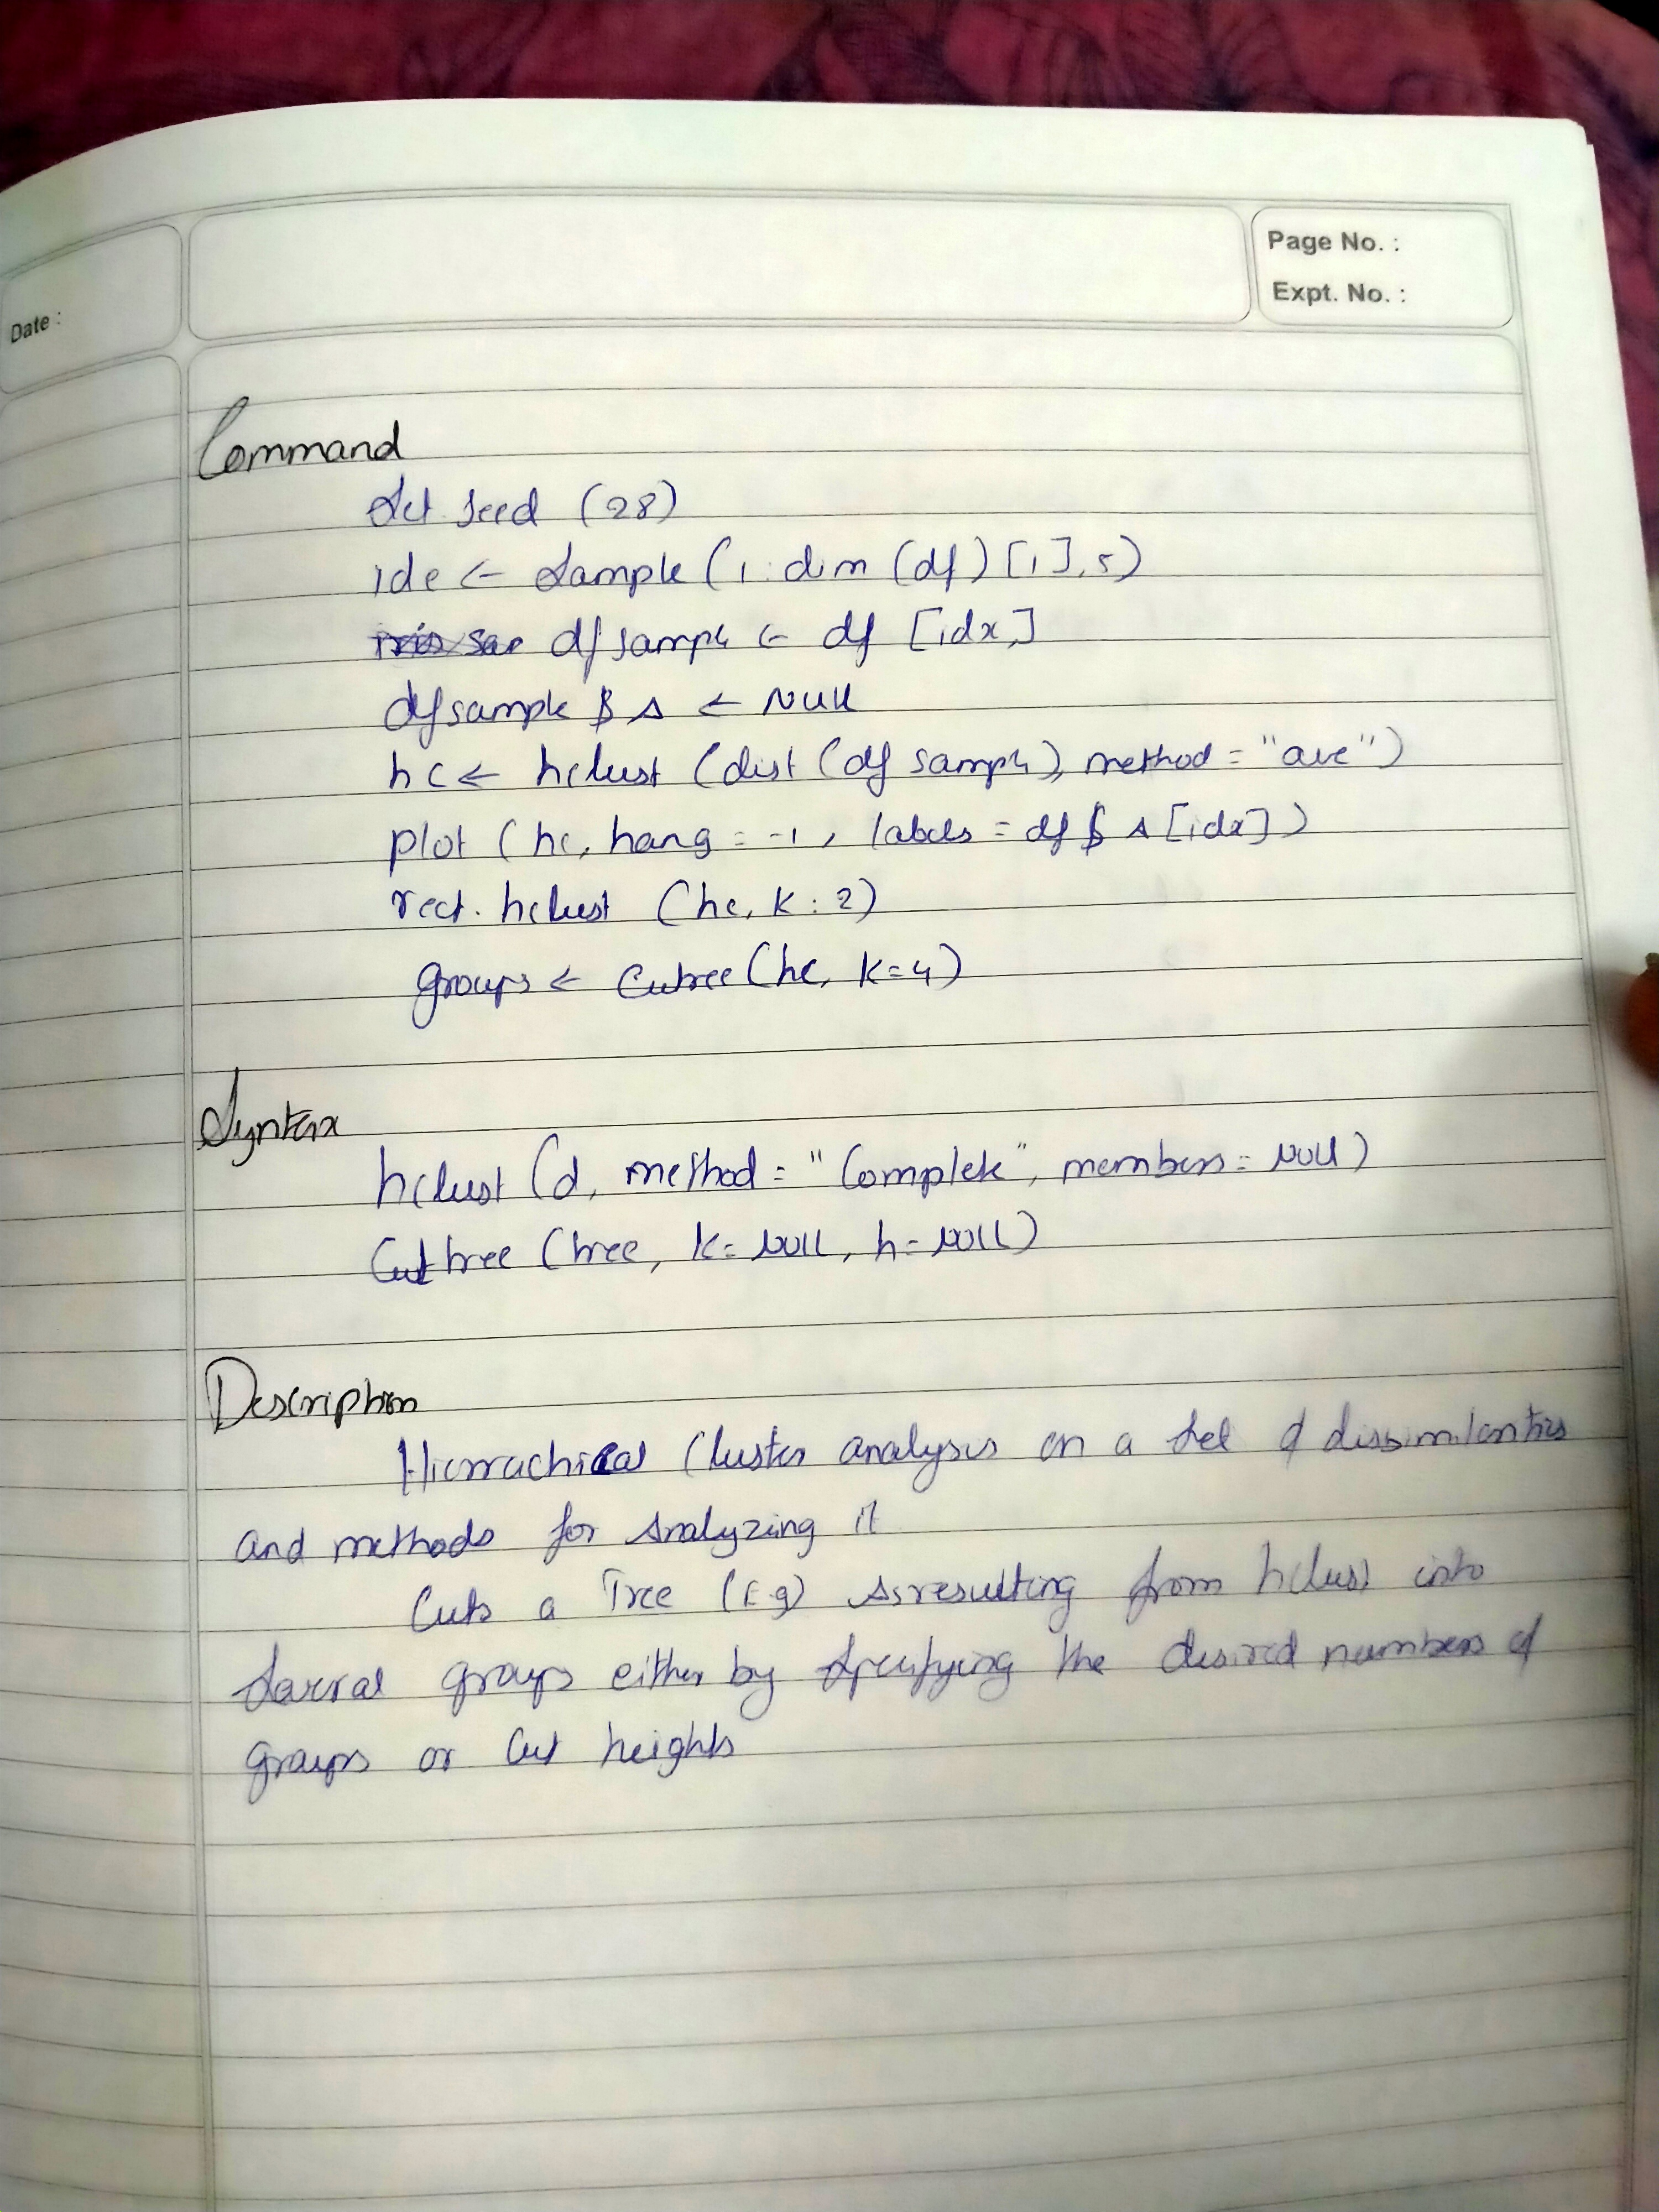 Page No. :
Expt. No. :
Date :
Command
Set seed (28)
ide <- Sample (1 : dim (df) [1], 5)
df sample <- df [idx,]
df sample $ A <- NULL
hc <- hclust (dist (df sample), method = "ave")
plot (hc, hang = -1, labels = df $ A [idx])
rect. hclust (hc, k : 2)
groups <- Cutree (hc, k=4)
Syntax
hclust (d, method = "Complete", members = NULL)
Cuttree (tree, k= NULL, h= NULL)
Description
Hierrachical Cluster analysis on a set of dissimilarities
and methods for Analyzing it
Cuts a Tree (E.g) As resulting from hclust into
Several groups either by Specifying the desired numbers of
groups or Cut heights